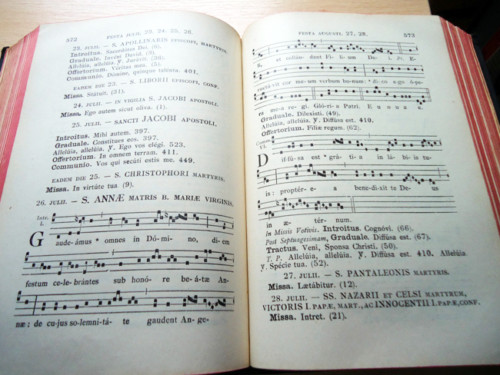 572 FESTA JULII, 23, 24, 25, 26.
23. JULII. — S. APOLLINARIS EPISCOPI, MARTYRIS.
Introitus. Sacerdótes Dei. (9)
Graduale. Invéni David. (3)
Allelúia, allelúia. ℣. Jurávit. (20)
Offertorium. Véritas mea. (5)
Communio. Dómine, quinque talénta. 401.
EADEM DIE 23. — S. LIBORII EPISCOPI, CONF.
Missa. Státuit. (31)
24. JULII. — IN VIGILIA S. JACOBI APOSTOLI.
Missa. Ego autem sicut olíva. (1)
25. JULII. — SANCTI JACOBI APOSTOLI.
Introitus. Mihi autem. 397.
Graduale. Constítues eos. 397.
Allelúia, allelúia. ℣. Ego vos elégi. 523.
Offertorium. In omnem terram. 411.
Communio. Vos qui secúti estis me. 449.
EADEM DIE 25. — S. CHRISTOPHORI MARTYRIS.
Missa. In virtúte tua (9).
26. JULII. — S. ANNÆ MATRIS B. MARIÆ VIRGINIS.
Intr.
Gaude-ámus * omnes in Dó-mi-no, di-em
festum ce-le-brántes sub honó-re be-á-tæ An-
næ : de cu-jus so-lemni-tá-te gaudent An-ge-
FESTA AUGUSTI, 27, 28. 573
li, et colláu-dant Fí-li-um De-i. Ps.
cor me-um verbum bonum : *
re-gi. Gló-ri-a Patri. E u o u a e.
Graduale. Dilexísti. (49)
Allelúia, allelúia. ℣. Diffúsa est. 410.
Offertorium. Fíliæ regum. (62)
Dif-fú-sa est * grá-ti-a in lá-bi-is tu-
is : proptér-e-a be-ne-dí-xit te De-us
in æ-tér-num.
In Missis Votivis. Introitus. Cognóvi. (66.)
Post Septuagesimam, Graduale. Diffúsa est. (67)
Tractus. Veni, Sponsa Christi. (50)
T. P. Allelúia, allelúia. ℣. Diffúsa est. 410. Allelúia
℣. Spécie tua. (52)
27. JULII. — S. PANTALEONIS MARTYRIS.
Missa. Lætábitur. (12)
28. JULII. — SS. NAZARII ET CELSI MARTYRUM,
VICTORIS I. PAPÆ, MART., AC INNOCENTII I. PAPÆ, CONF.
Missa. Intret. (21)